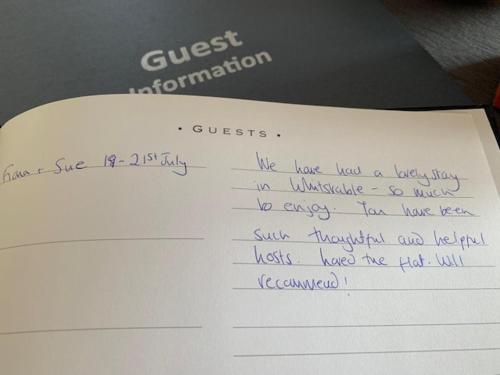 Guest
Information
• GUESTS •
Fran + Sue 19-21st July
We have had a lovely stay
in Whitstable - so much
to enjoy. You have been
such thoughtful and helpful
hosts. Loved the flat. Will
recommend!